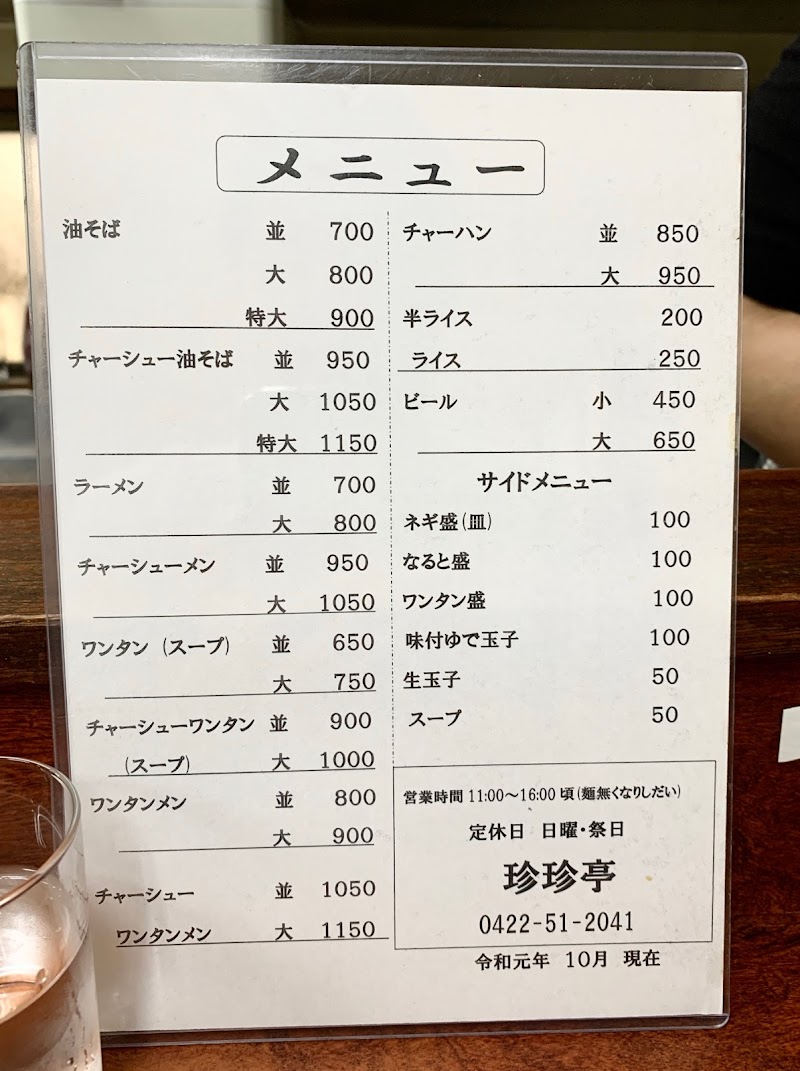 メニュー
油そば 並 700
大 800
特大 900
チャーシュー油そば 並 950
大 1050
特大 1150
ラーメン 並 700
大 800
チャーシューメン 並 950
大 1050
ワンタン (スープ) 並 650
大 750
チャーシューワンタン 並 900
(スープ) 大 1000
ワンタンメン 並 800
大 900
チャーシュー 並 1050
ワンタンメン 大 1150
チャーハン 並 850
大 950
半ライス 200
ライス 250
ビール 小 450
大 650
サイドメニュー
ネギ盛(皿) 100
なると盛 100
ワンタン盛 100
味付ゆで玉子 100
生玉子 50
スープ 50
営業時間 11:00～16:00 頃(麺無くなりしだい)
定休日 日曜・祭日
珍珍亭
0422-51-2041
令和元年 10月 現在